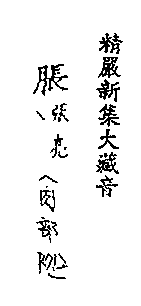 精嚴新集大藏音
脹、張亮〈肉部